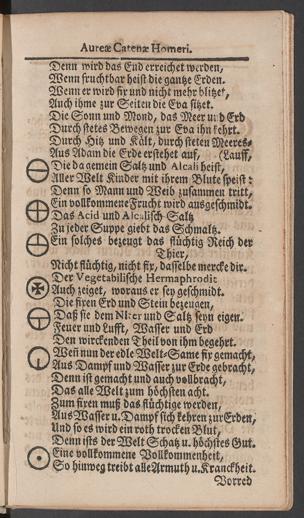 Aureæ Catenæ Homeri.
Denn wird das End erreichet werden,
Wenn fruchtbar heist die gantze Erden.
Wenn er wird fix und nicht mehr blitzet,
Auch ihme zur Seiten die Eva sitzet.
Die Sonn und Mond, das Meer und Erd
Durch stetes Bewegen zur Eva ihn kehrt.
Durch Hitz und Kält, durch steten Meeres-
Aus Adam die Erde erstehet auf, (Lauff,
Die da gemein Saltz und Alcali heist,
Aller Welt Kinder mit ihrem Blute speist:
Denn so Mann und Weib zusammen tritt,
Ein vollkommene Frucht wird ausgeschmidt.
Das Acid und Alcalisch Saltz
Zu jeder Suppe giebt das Schmaltz.
Ein solches bezeugt das flüchtig Reich der
Thier,
Nicht flüchtig, nicht fix, dasselbe mercke dir.
Der Vegetabilische Hermaphrodit
Auch zeiget, woraus er sey geschmidt.
Die fixen Erd und Stein bezeugen,
Daß sie dem Niter und Saltz seyn eigen.
Feuer und Lufft, Wasser und Erd
Den wirckenden Theil von ihm begehrt.
Weñ nun der edle Welt-Same fix gemacht,
Aus Dampf und Wasser zur Erde gebracht,
Denn ist gemacht und auch vollbracht,
Das alle Welt zum höchsten acht.
Zum fixen muß das flüchtige werden,
Aus Wasser u. Dampf sich kehren zur Erden,
Und so es wird ein roth trocken Blut,
Denn ists der Welt Schatz u. höchstes Gut.
Eine vollkommene Vollkommenheit,
So hinweg treibt alle Armuth u. Kranckheit.
Vorred